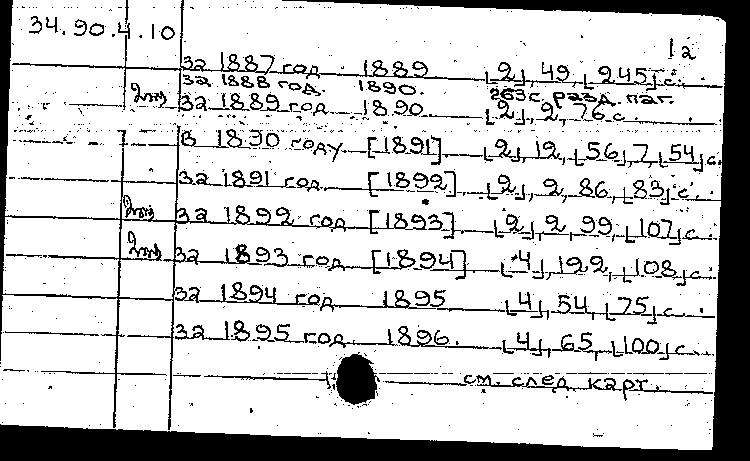 34.90.4.10
1а
за 1887 год 1889 [2], 49, [245] с.
за 1888 год. 1890. 263 с. разд. паг.
2 экз за 1889 год 1890 [2], 2, 76 с.
В 1890 году [1891]. [2], 12, [56], 7, [54] с.
за 1891 год [1892]. [2], 2, 86, [83] с.
2 экз за 1892 год [1893]. [2], 2, 99, [107] с.
2 экз за 1893 год [1894]. [4], 122, [108] с.
за 1894 год 1895 [4], 54, [75] с.
за 1895 год 1896. [4], 65, [100] с.
см. след. карт.